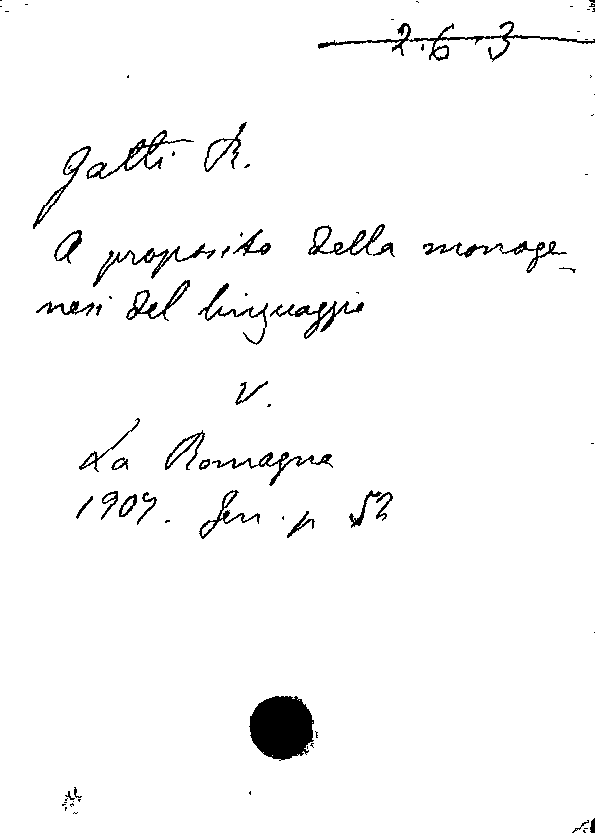 2.6.3
Gatti R.
A proposito della monoge_
nesi del linguaggio
V.
La Romagna
1907. Gen. p 52